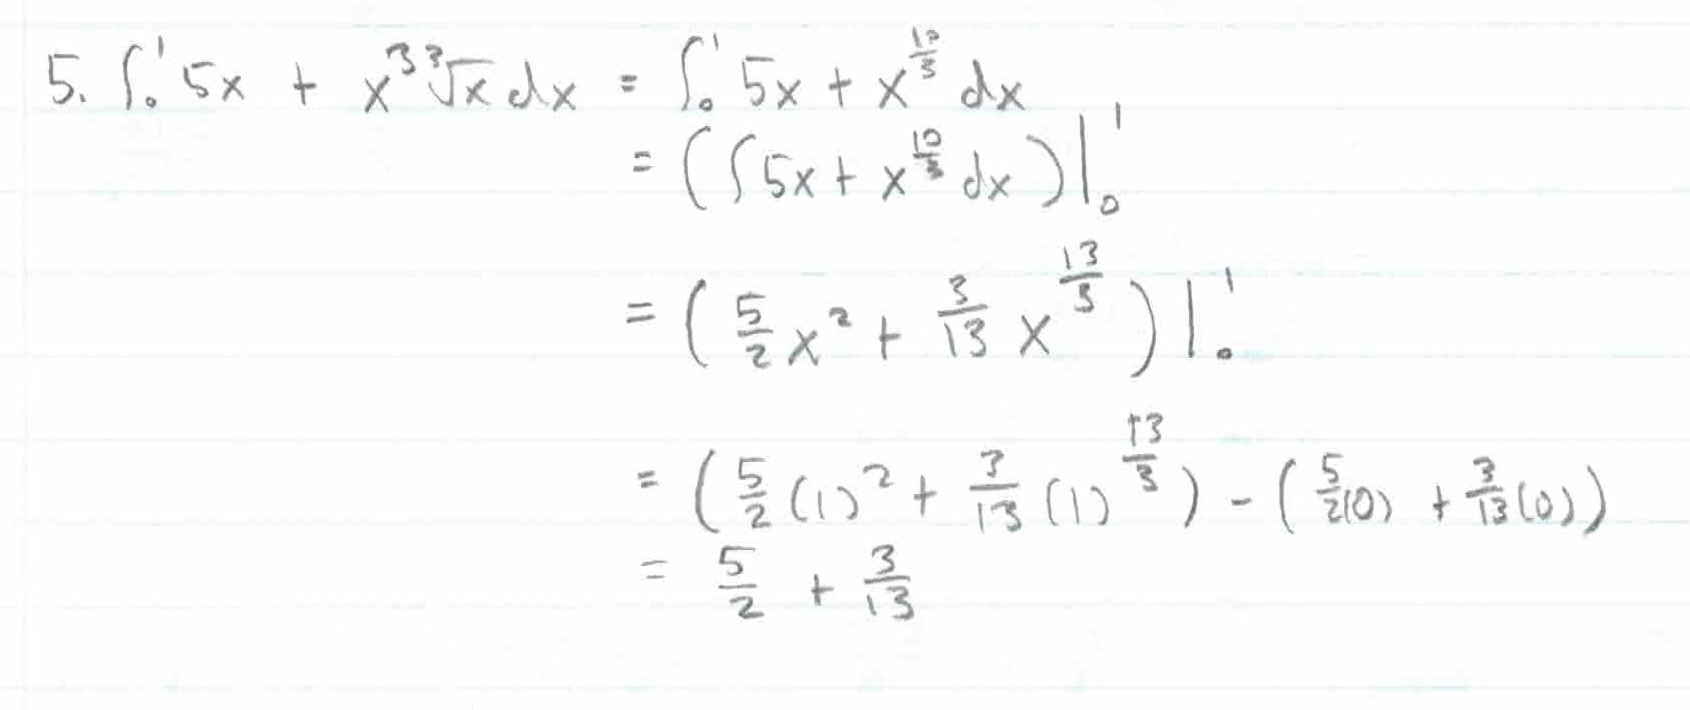 5. ∫₀¹ 5x + x³ ∛x dx = ∫₀¹ 5x + x^(10/3) dx
= (∫ 5x + x^(10/3) dx)|₀¹
= (5/2 x² + 3/13 x^(13/3))|₀¹
= (5/2 (1)² + 3/13 (1)^(13/3)) - (5/2(0) + 3/13(0))
= 5/2 + 3/13